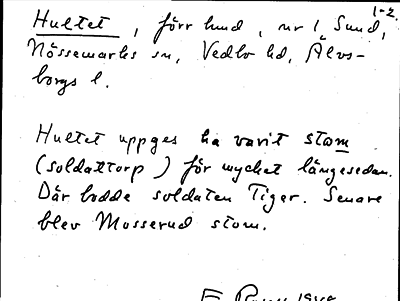 1-2.
Hultet, förr lund, nr 1 Sund,
Nössemarks sn, Vedbo hd, Älvs-
borgs l.
Hultet uppges ha varit stom
(soldattorp) för mycket längesedan.
Där bodde soldaten Tiger. Senare
blev Mosserud stom.